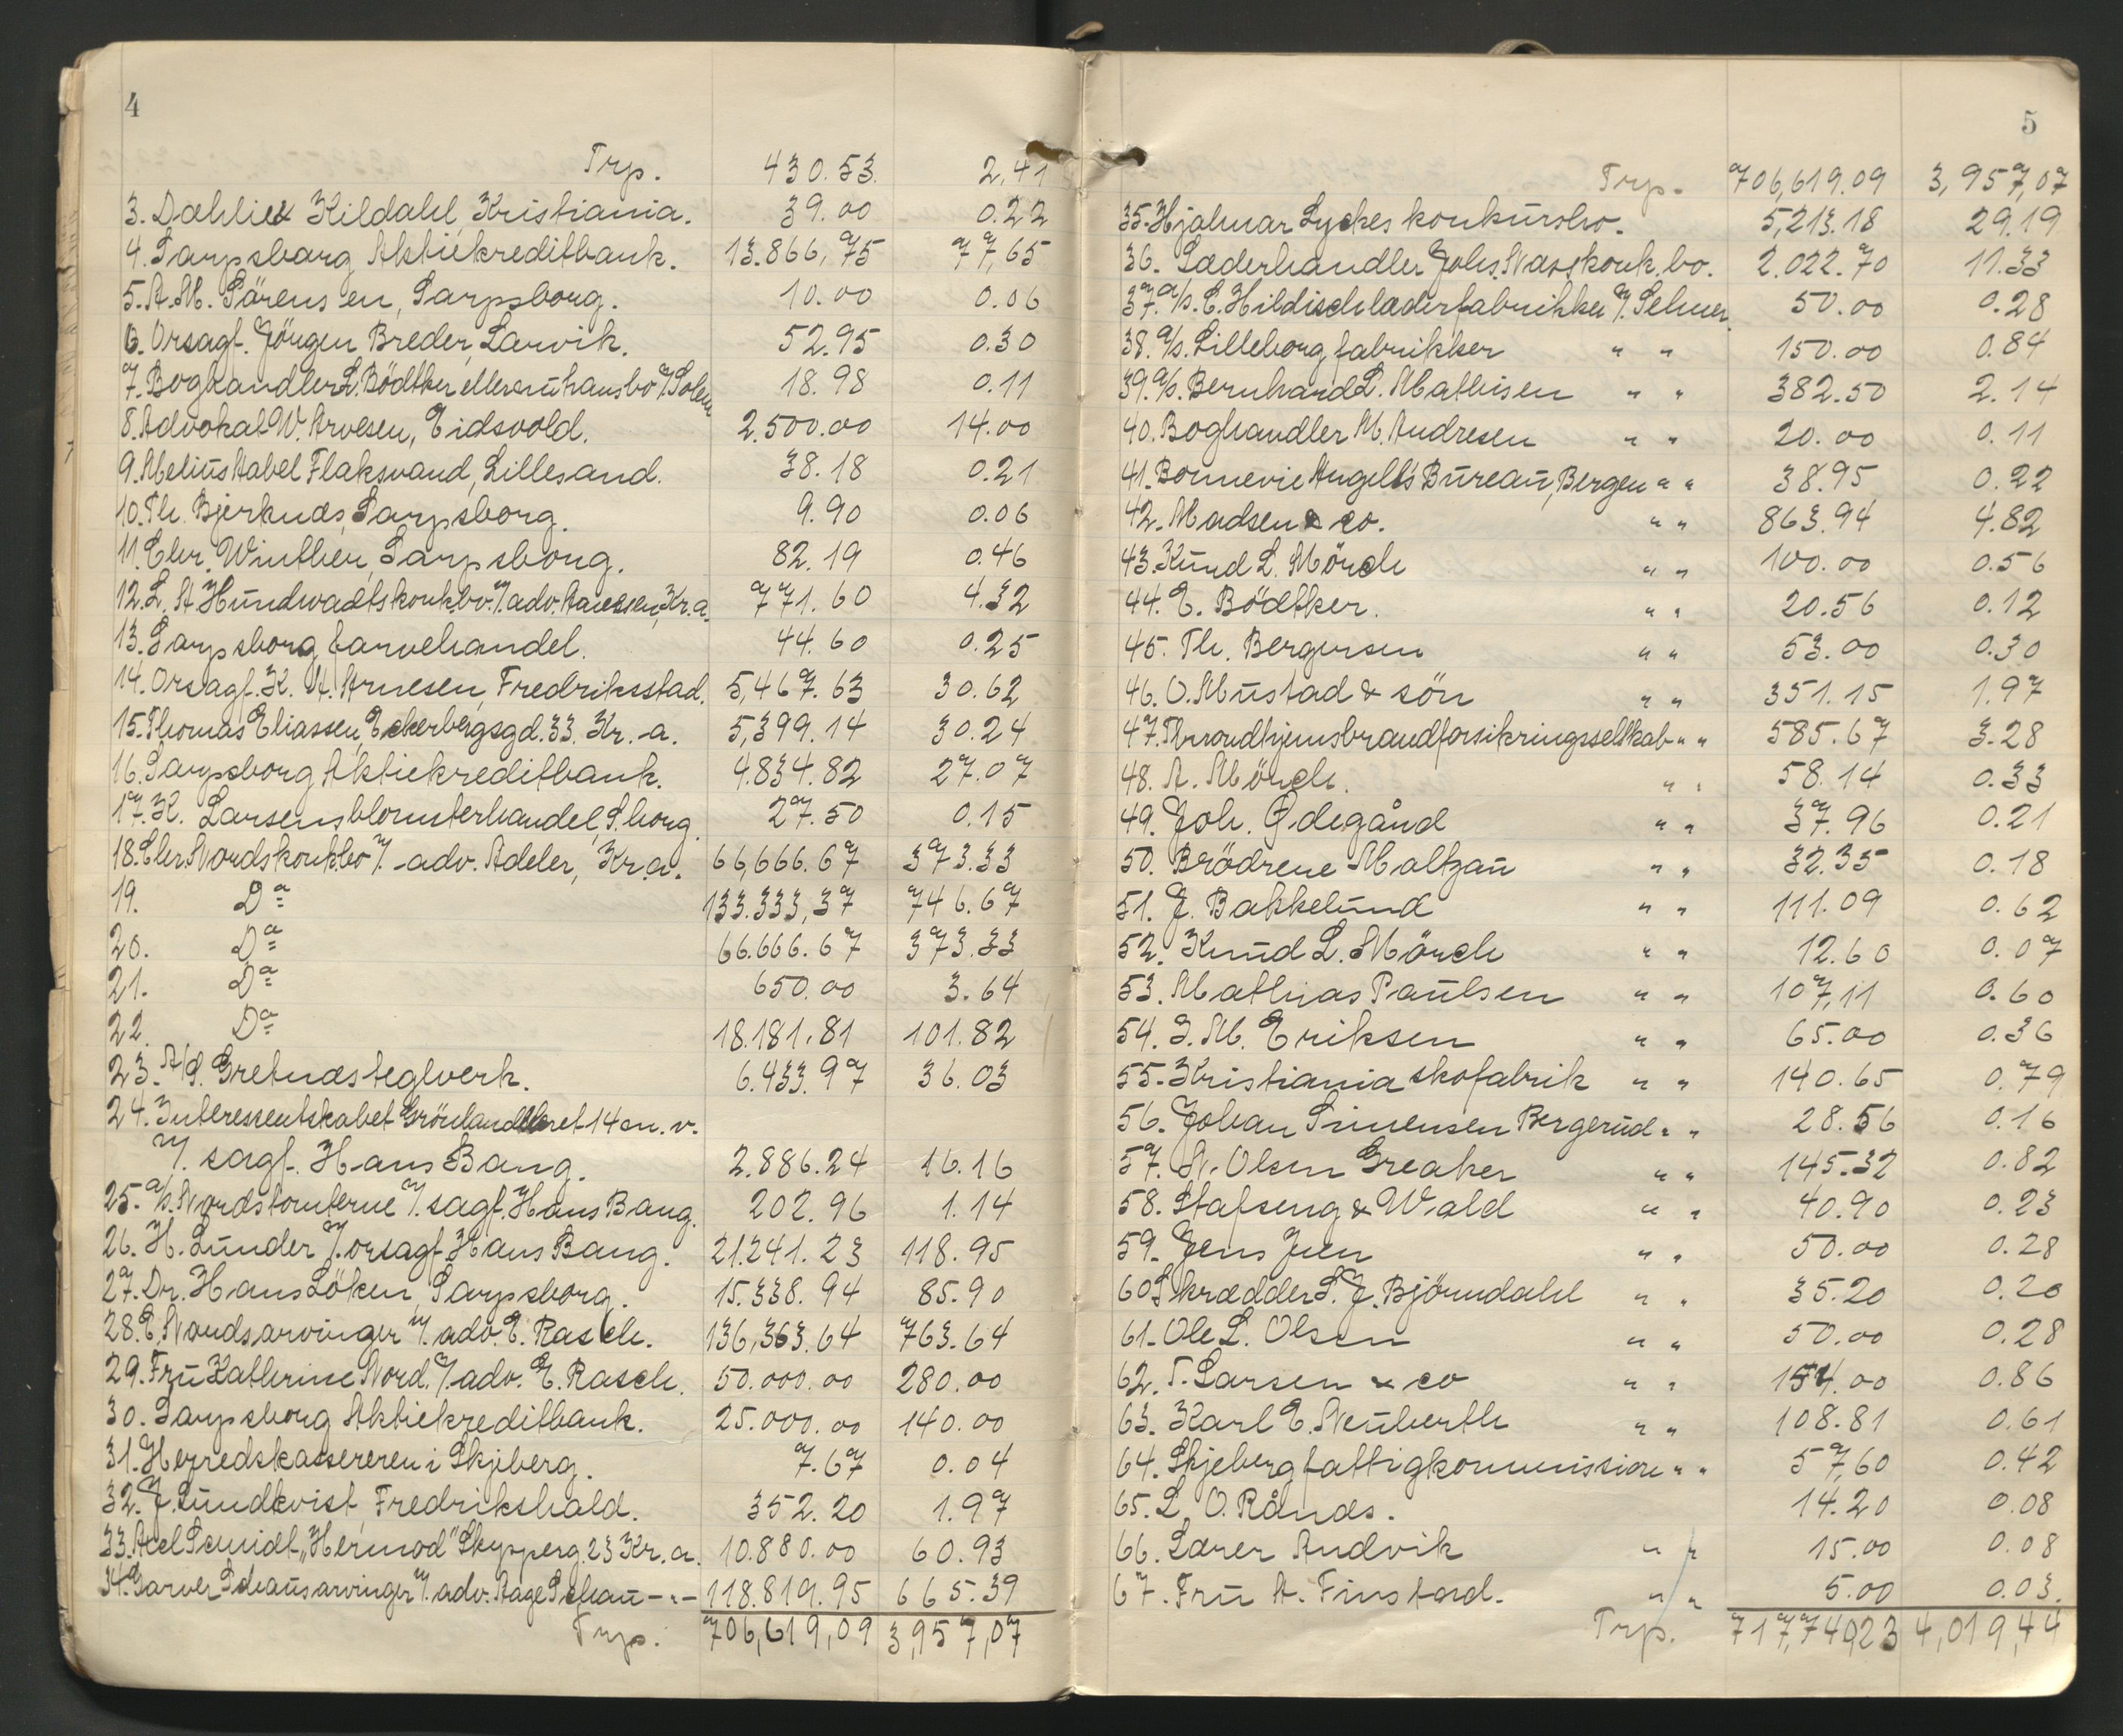 4
Trp. 430.53. 2,41
3. Dahlie & Kildahl, Kristiania. 39.00 0.22
4. Sarpsborg Aktiekreditbank. 13.866,75 77,65
5. A.M. Sörensen, Sarpsborg. 10.00 0.06
6. Orsagf. Jörgen Breder, Larvik. 52.95 0.30
7. Boghandler L. Bödtker eller 18.98 0.11
8. Advokat W. Arvesen, Eidsvold. 2.500.00 14.00
9. Melius Aabel Flaksvand, Lillesand. 38.18 0.21
10. Th. Bjerknæs, Sarpsborg. 9.90 0.06
11. Chr. Winther, Sarpsborg. 82.19 0.46
12. L. A. Hundwadts konk.bo. v/. adv. Kr.a. 771.60 4.32
13. Sarpsborg farvehandel. 44.60 0.25
14. Orsagf. K. A. Arnesen, Fredriksstad. 5,467.63 30.62
15. Thomas Eliassen, Eckerbergsgd. 33. Kr.-a. 5,399.14 30.24
16. Sarpsborg Aktiekreditbank. 4.834.82 27.07
17. K. Larsens blomsterhandel, S.borg. 27.50 0.15
18. Chr. Nords konk.bo v/. adv. Adeler, Kr.a. 66,666.67 373.33
19. Do 133.333,37 746.67
20. Do 66.666.67 373.33
21. Do 650.00 3.64
22. Do 18.181.81 101.82
23. A/S. Gretnæs teglverk. 6.433.97 36.03
24. Interessentskabet Grönland 14 m. v.
v/. sagf. Hans Bang. 2.886.24 16.16
25. a/s. Nordstomterne v/. sagf. Hans Bang. 202.96 1.14
26. H. Lunder v/. orsagf. Hans Bang. 21.241.23 118.95
27. Dr. Hans Löken, Sarpsborg. 15.338.94 85.90
28. E. Nords arvinger v/. adv. E. Rasch. 136,363.64 763.64
29. Fru Kathrine Nord. v/. adv. E. Rasch. 50.000.00 280.00
30. Sarpsborg Aktiekreditbank. 25.000.00 140.00
31. Herredskassereren i Skjeberg. 7.67 0.04
32. J. Lundkvist, Fredrikshald. 352.20 1.97
33. Axel Scmidt, „Hermod" Skypperg. 23 Kr.a. 10.880.00 60.93
34. Garver Schaus arvinger v/. adv. Aage Schau -"- 118.819.95 665.39
Trp. 706,619,09 3,957,07
5
Trp. 706,619.09 3,957,07
35. Hjalmar Lyckes konkursbo. 5,213.18 29.19
36. Læderhandler Johs. Næss konk.bo. 2.022.70 11.33
37. a/s. C. Hildisch læderfabrikker v/. Selmer. 50.00 0.28
38. a/s. Lilleborg fabrikker " " 150.00 0.84
39. a/s. Bernhard L. Mathisen " " 382.50 2.14
40. Boghandler M. Andresen " " 20.00 0.11
41. Bonnevie Angells Bureau, Bergen " " 38.95 0.22
42. Madsen & co. " " 863.94 4.82
43. Knud L. Mörch " " 100.00 0.56
44. E. Bödtker. " " 20.56 0.12
45. Th. Bergersen " " 53.00 0.30
46. O. Mustad & sön " " 351.15 1.97
47. Throndhjems brandforsikringsselskab " " 585.67 3.28
48. A. Mörch. " " 58.14 0.33
49. Joh. Ødegård " " 37.96 0.21
50. Brödrene Maltzau " " 32.35 0.18
51. J. Bakkelund " " 111.09 0.62
52. Knud L. Mörch " " 12.60 0.07
53. Mathias Paulsen " " 107,11 0.60
54. J. M. Eriksen " " 65.00 0.36
55. Kristiania skofabrik " " 140.65 0.79
56. Johan Simensen Bergerud " " 28.56 0.16
57. N. Olsen Greaker " " 145.32 0.82
58. Stafseng & Wald " " 40.90 0.23
59. Jens Juen " " 50.00 0.28
60. Skrædder S. J. Björndahl " " 35.20 0.20
61. Ole L. Olsen " " 50.00 0.28
62. T. Larsen & co " " 154.00 0.86
63. Karl E. Neuberth " " 108.81 0.61
64. Skjeberg fattigkommission " " 57,60 0.42
65. L. O. Rånås. 14.20 0.08
66. Lærer Andvik " " 15.00 0.08
67. Fru A. Finstad. " " 5.00 0.03.
Trp. 717,740,23 4,019,44